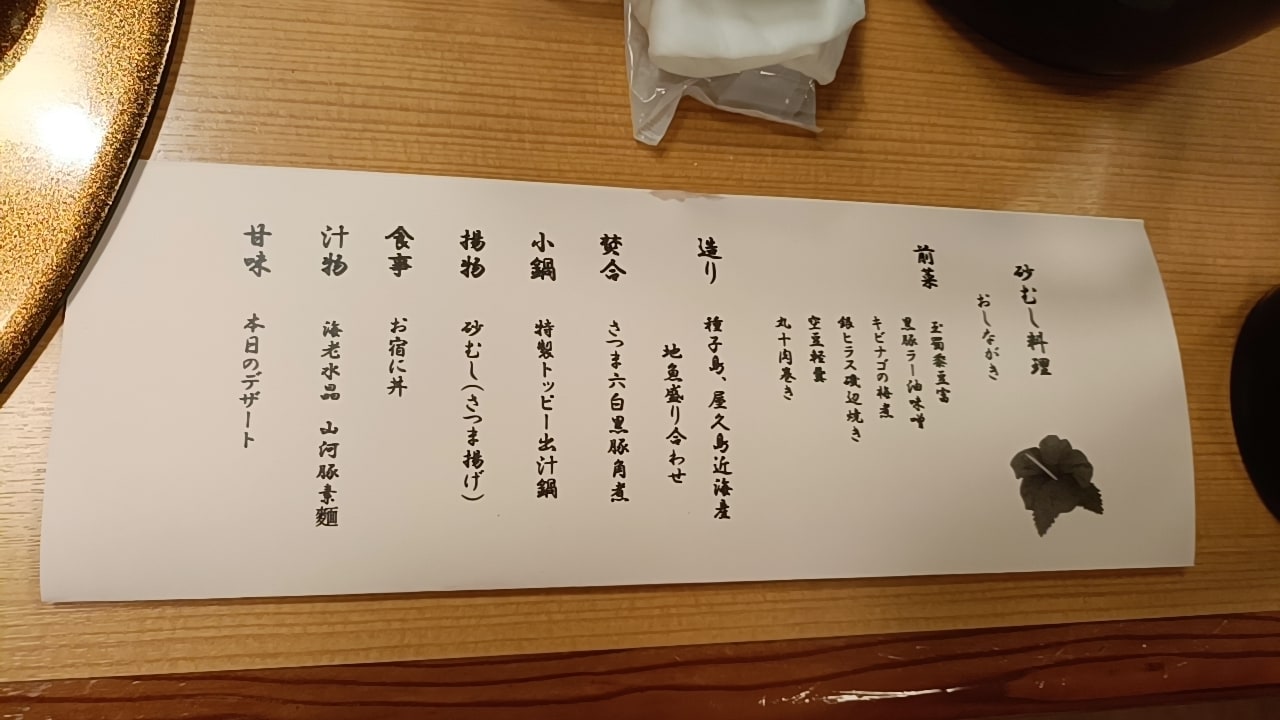 砂むし料理
おしながき
前菜
玉蜀黍豆富
黒豚ラー油味噌
キビナゴの梅煮
銀ヒラス磯辺焼き
空豆軽羹
丸十肉巻き
造り
種子島、屋久島近海産
地魚盛り合わせ
焚合
さつま六白黒豚角煮
小鍋
特製トッピー出汁鍋
揚物
砂むし(さつま揚げ)
食事
お宿に丼
汁物
海老水晶 山河豚素麺
甘味
本日のデザート